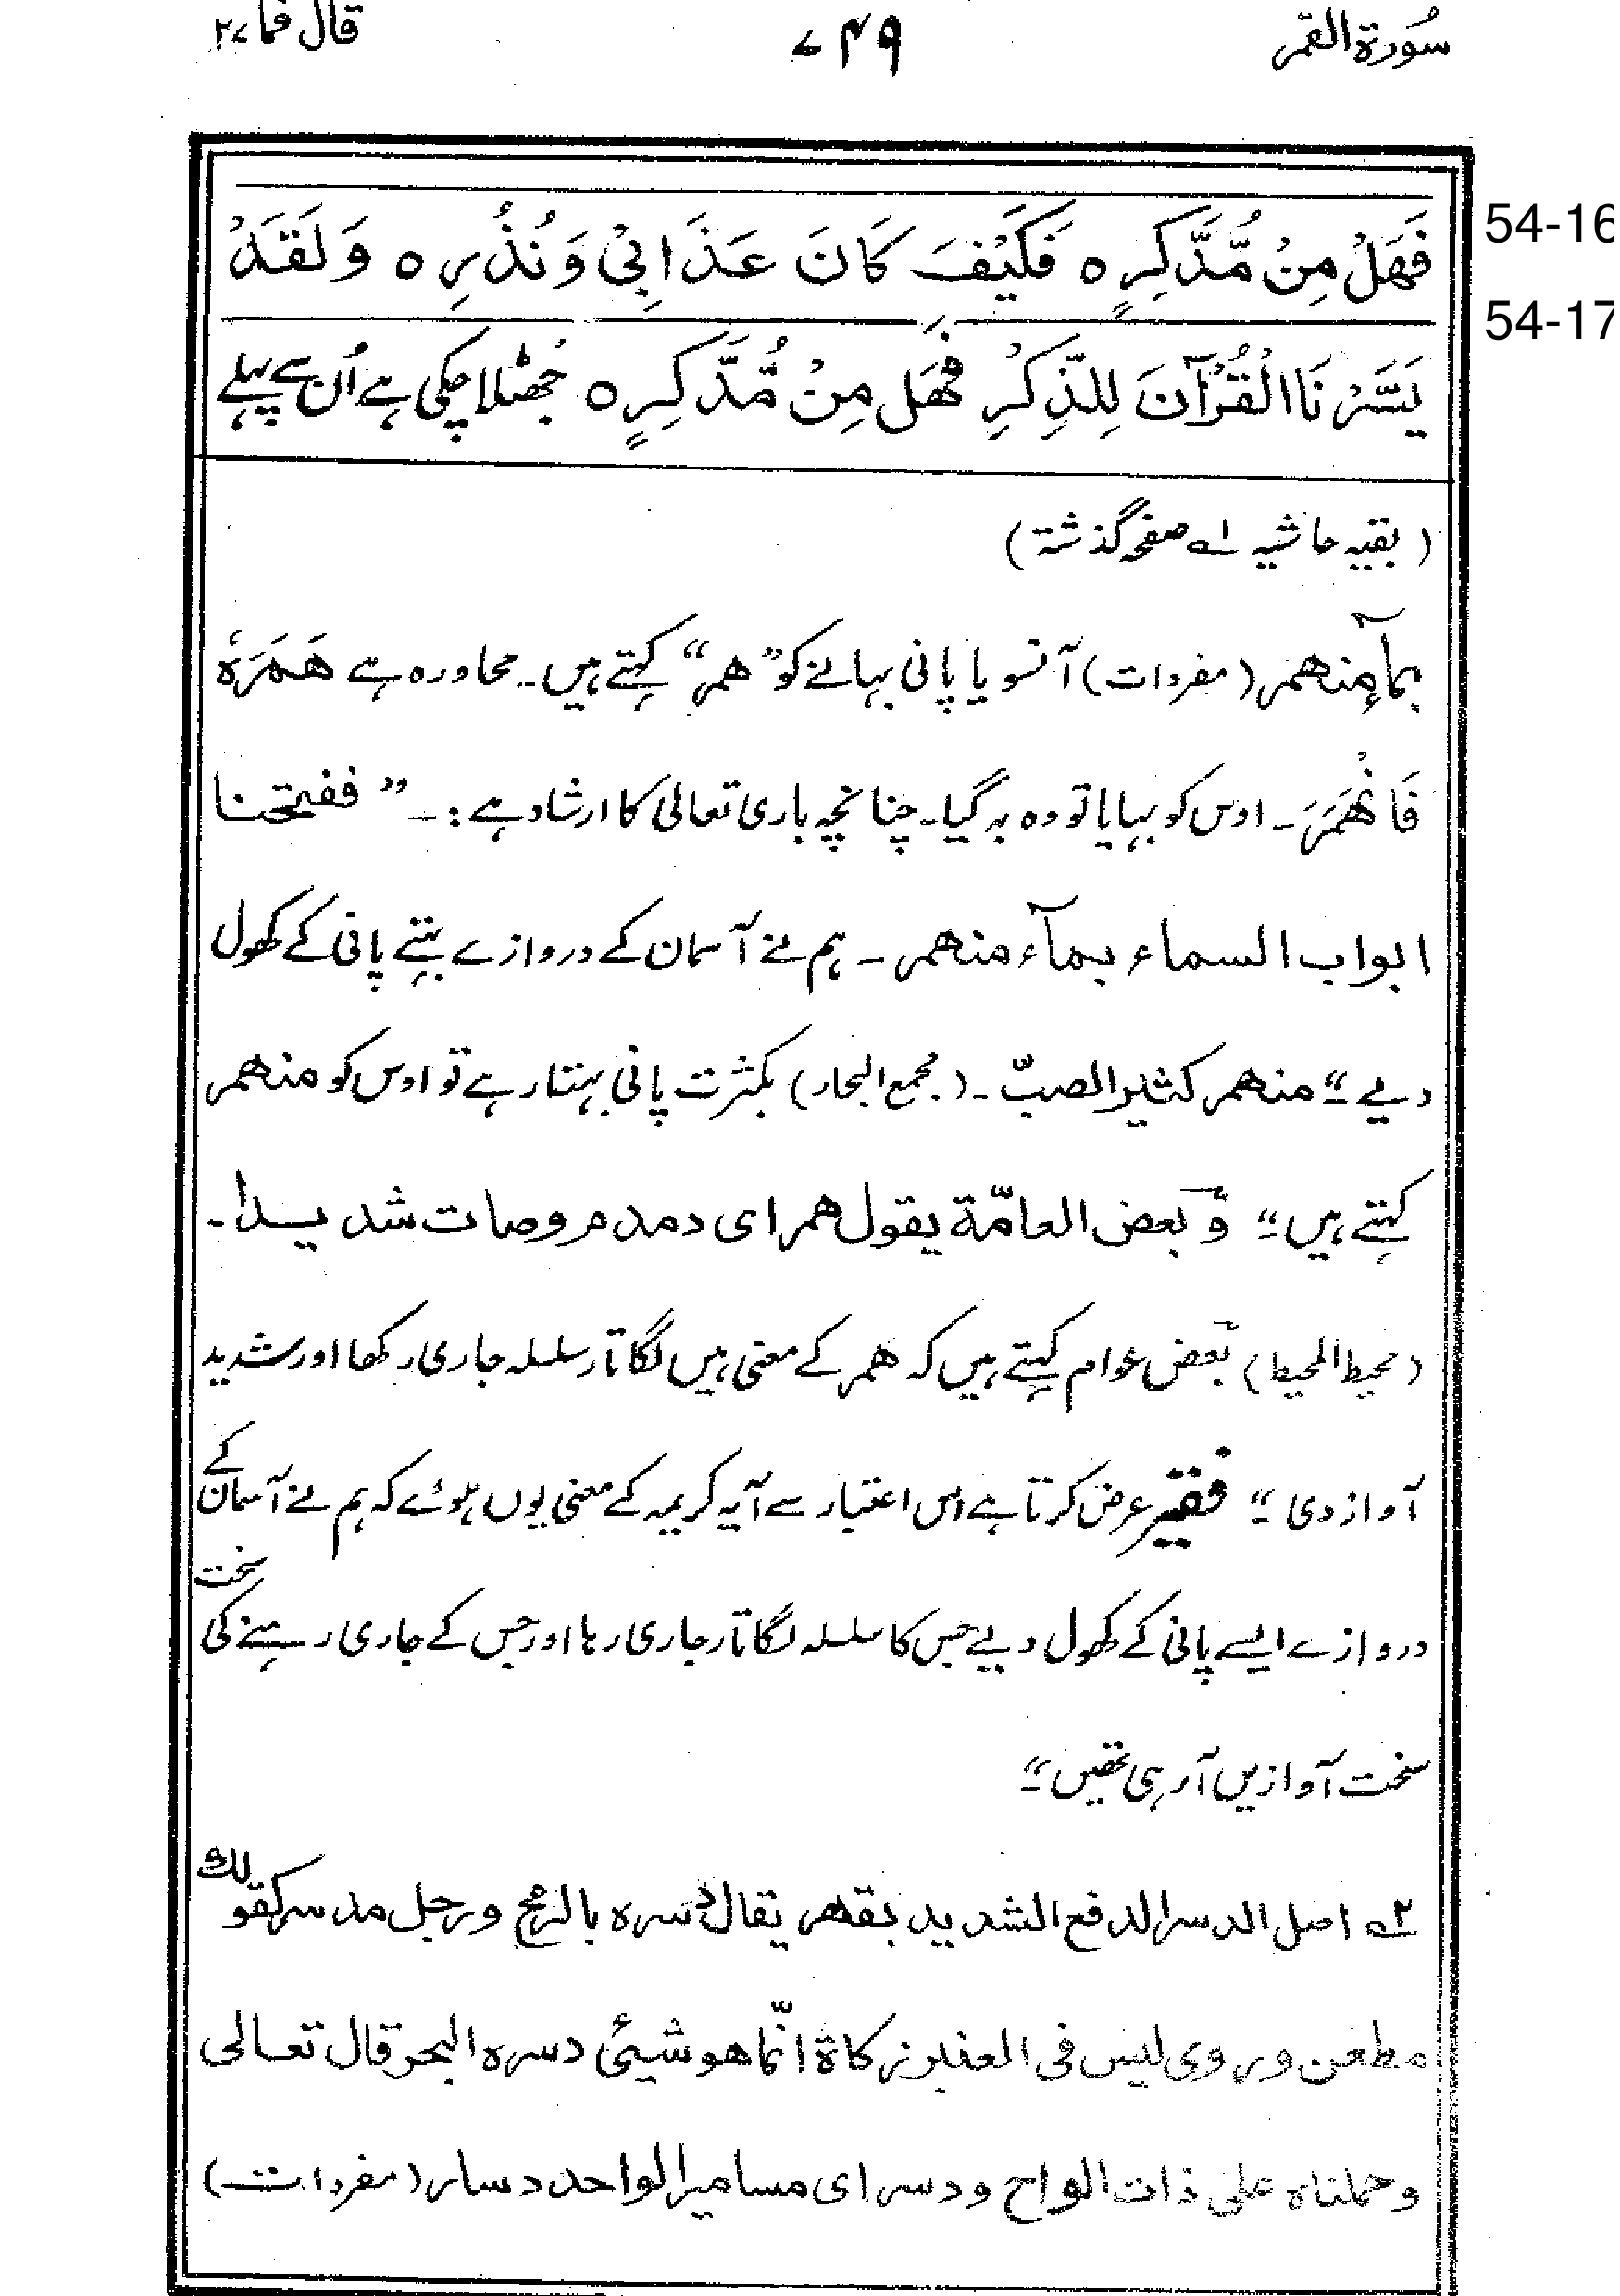 سُورة القمر ۷۴۹ قال فما ۲۷
فَهَلْ مِنْ مُّدَّكِرٍ ه فَكَيْفَ كَانَ عَذَابِيْ وَنُذُرِ ه وَلَقَدْ
54-16
54-17
يَسَّرْنَا الْقُرْآنَ لِلذِّكْرِ فَهَل مِنْ مُّدَّكِرٍ ه جُھٹلا چکی ہے اُن سے پہلے
( بقیہ حاشیہ ۱ے صفحہ گذشتہ )
بمآءٍ منهمر (مفردات) آنسو یا پانی بہانے کو ”همر“ کہتے ہیں۔ محاورہ ہے هَمَرَهٗ
فَانْهَمَرَ ۔ اوس کو بہایا تو وہ بہ گیا۔ چنانچہ باری تعالی کا ارشاد ہے :۔ ” ففتحنا
ابواب السماء بمآء منهمر ۔ ہم نے آسمان کے دروازے بہتے پانی کے کھول
دیے “ منهمر كثير الصبّ ۔ (مجمع البحار) بکثرت پانی بہتا رہے تو اوس کو منهمر
کہتے ہیں “ و بعض العامّة يقول همر اى دمدم وصات شديدا ۔
(محیط المحیط) بعض عوام کہتے ہیں کہ همر کے معنی ہیں لگاتار سلسلہ جاری رکھا اور شدید
آواز دی “ فقیر عرض کرتا ہے اس اعتبار سے آیہ کریمہ کے معنی یوں ہوئے کہ ہم نے آسمان کے
دروازے ایسے پانی کے کھول دیے جس کا سلسلہ لگاتار جاری رہا اور جس کے جاری رہنے کی سخت
سخت آوازیں آرہی تھیں “
۲ے اصل الدسر الدفع الشديد بقهر يقال دسره بالرمح ورجل مدسر كقولك
مطعن وروى ليس فى العنبر زكاة انّما هو شيئ دسره البحر قال تعالى
وحملناه على ذات الواح ودسر اى مسامير الواحد دسار (مفردات)